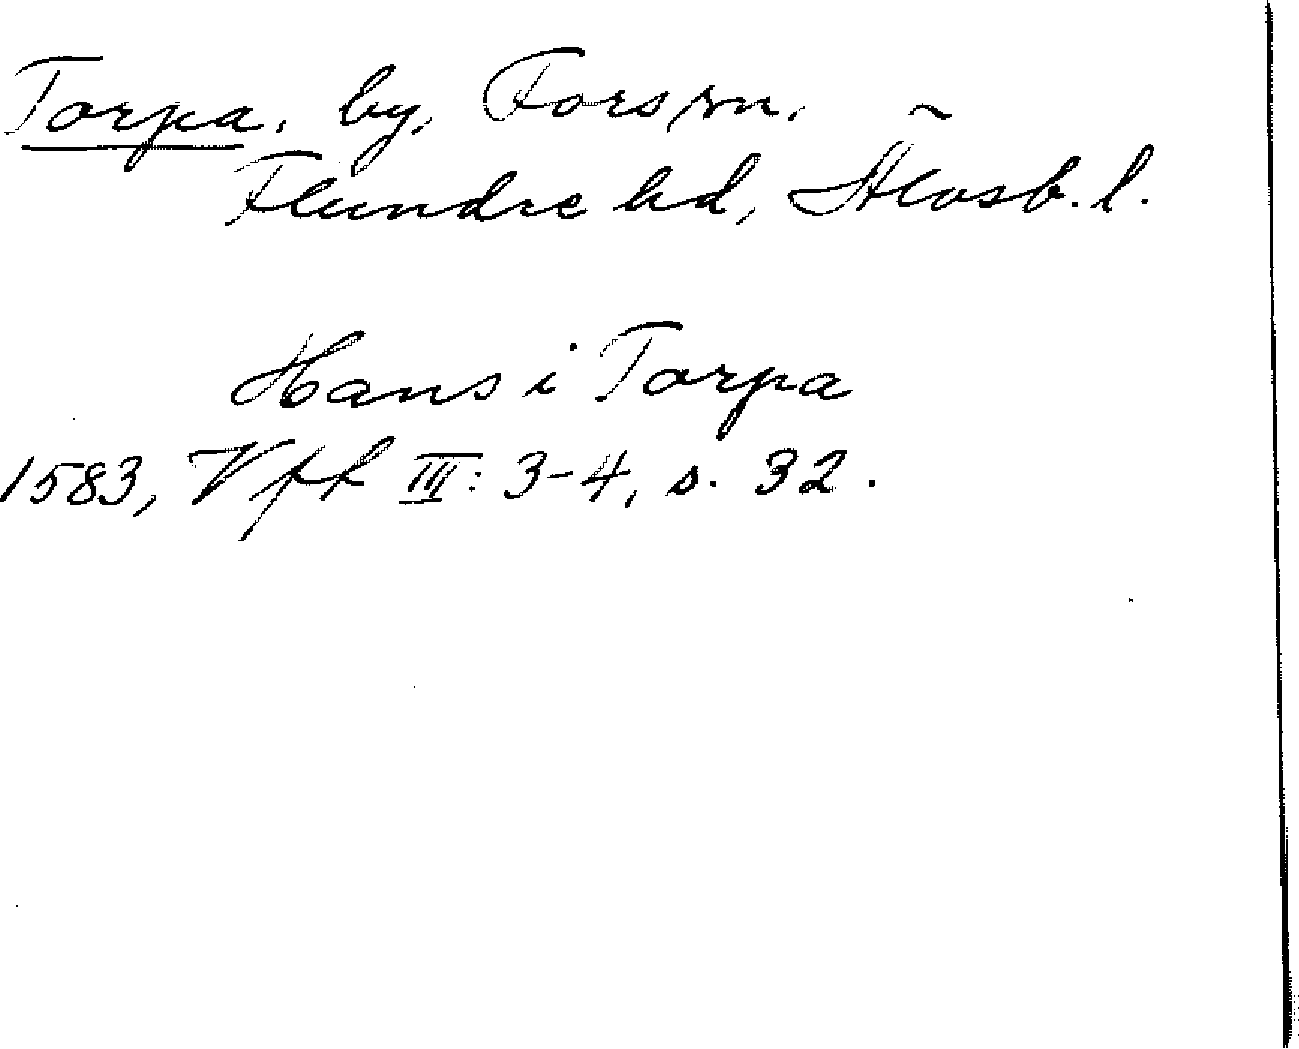 Torpa, by, Fors sn.
Flundre hd, Älvsb. l.
Hans i Torpa
1583, Vff III: 3-4, s. 32.